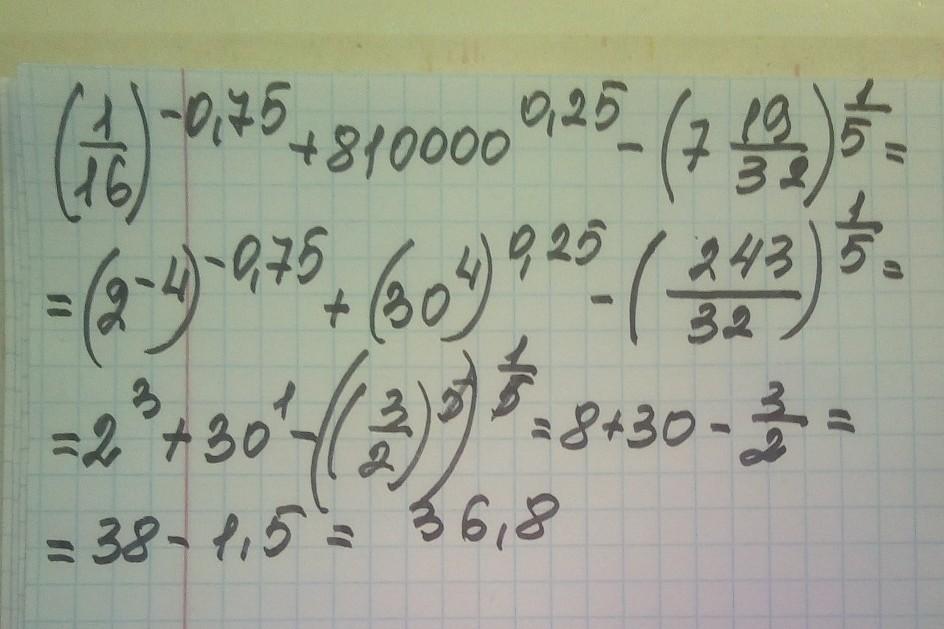 (1/16)^-0,75 + 810000^0,25 - (7 19/32)^1/5 =
= (2^-4)^-0,75 + (30^4)^0,25 - (243/32)^1/5 =
= 2^3 + 30^1 - ((3/2)^5)^1/5 = 8 + 30 - 3/2 =
= 38 - 1,5 = 36,8